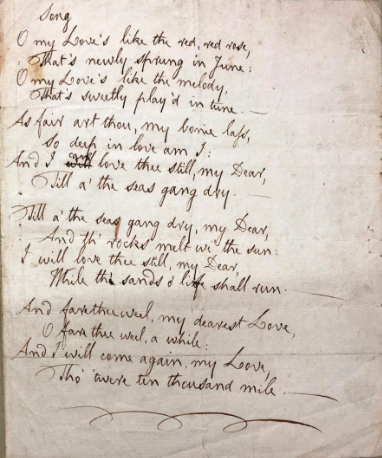 Song
O my Love's like the red, red rose,
That's newly sprung in June:
O my Love's like the melody,
That's sweetly play'd in tune.—
As fair art thou, my bonie lass,
So deep in love am I:
And I can love thee still, my Dear,
Till a' the seas gang dry.—
Till a' the seas gang dry, my Dear,
And th' rocks melt wi' the sun:
I will love thee still, my Dear,
While the sands o' life shall run.—
And fare thee weel, my dearest Love,
O fare thee weel, a while:
And I will come again, my Love,
Tho' 'twere ten thousand mile.—